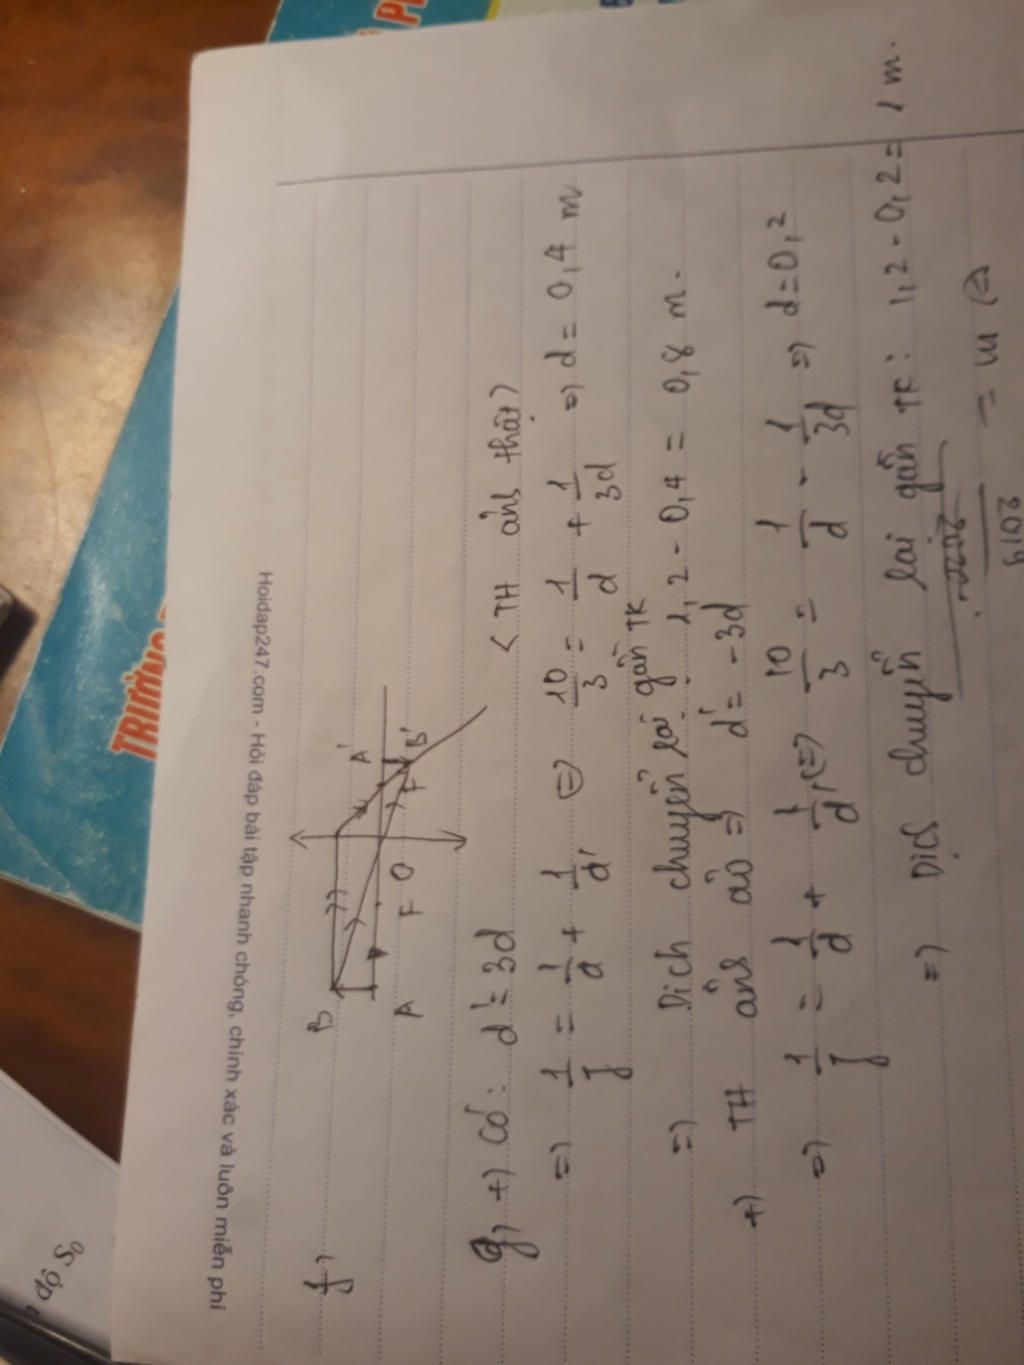 Hoidap247.com - Hỏi đáp bài tập nhanh chóng, chính xác và luôn miễn phí
f,
B
A
F
O
F'
A'
B'
g, +) Có: d' = 3d < TH ảnh thật>
=> 1/f = 1/d + 1/d' <=> 10/3 = 1/d + 1/3d => d = 0,4 m
=> Dịch chuyển lại gần TK : 1,2 - 0,4 = 0,8 m.
+) TH ảnh ảo => d' = -3d
=> 1/f = 1/d + 1/d' <=> 10/3 = 1/d - 1/3d => d = 0,2
=> Dịch chuyển lại gần TK: 1,2 - 0,2 = 1 m.
2019
độ S₀
TRƯỜNG